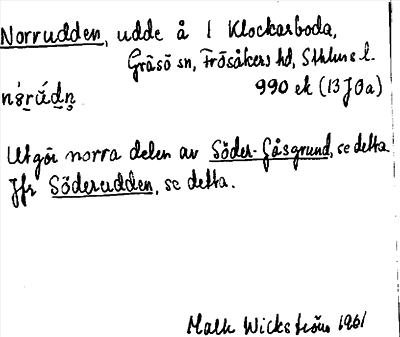 Norrudden, udde å 1 Klockarboda,
Gräsö sn, Frösåkers hd, Sthlms l.
990 ek (13 J 0a)
Utgör norra delen av Söder-Gåsgrund, se detta.
Jfr Söderudden, se detta.
Malte Wickström 1961